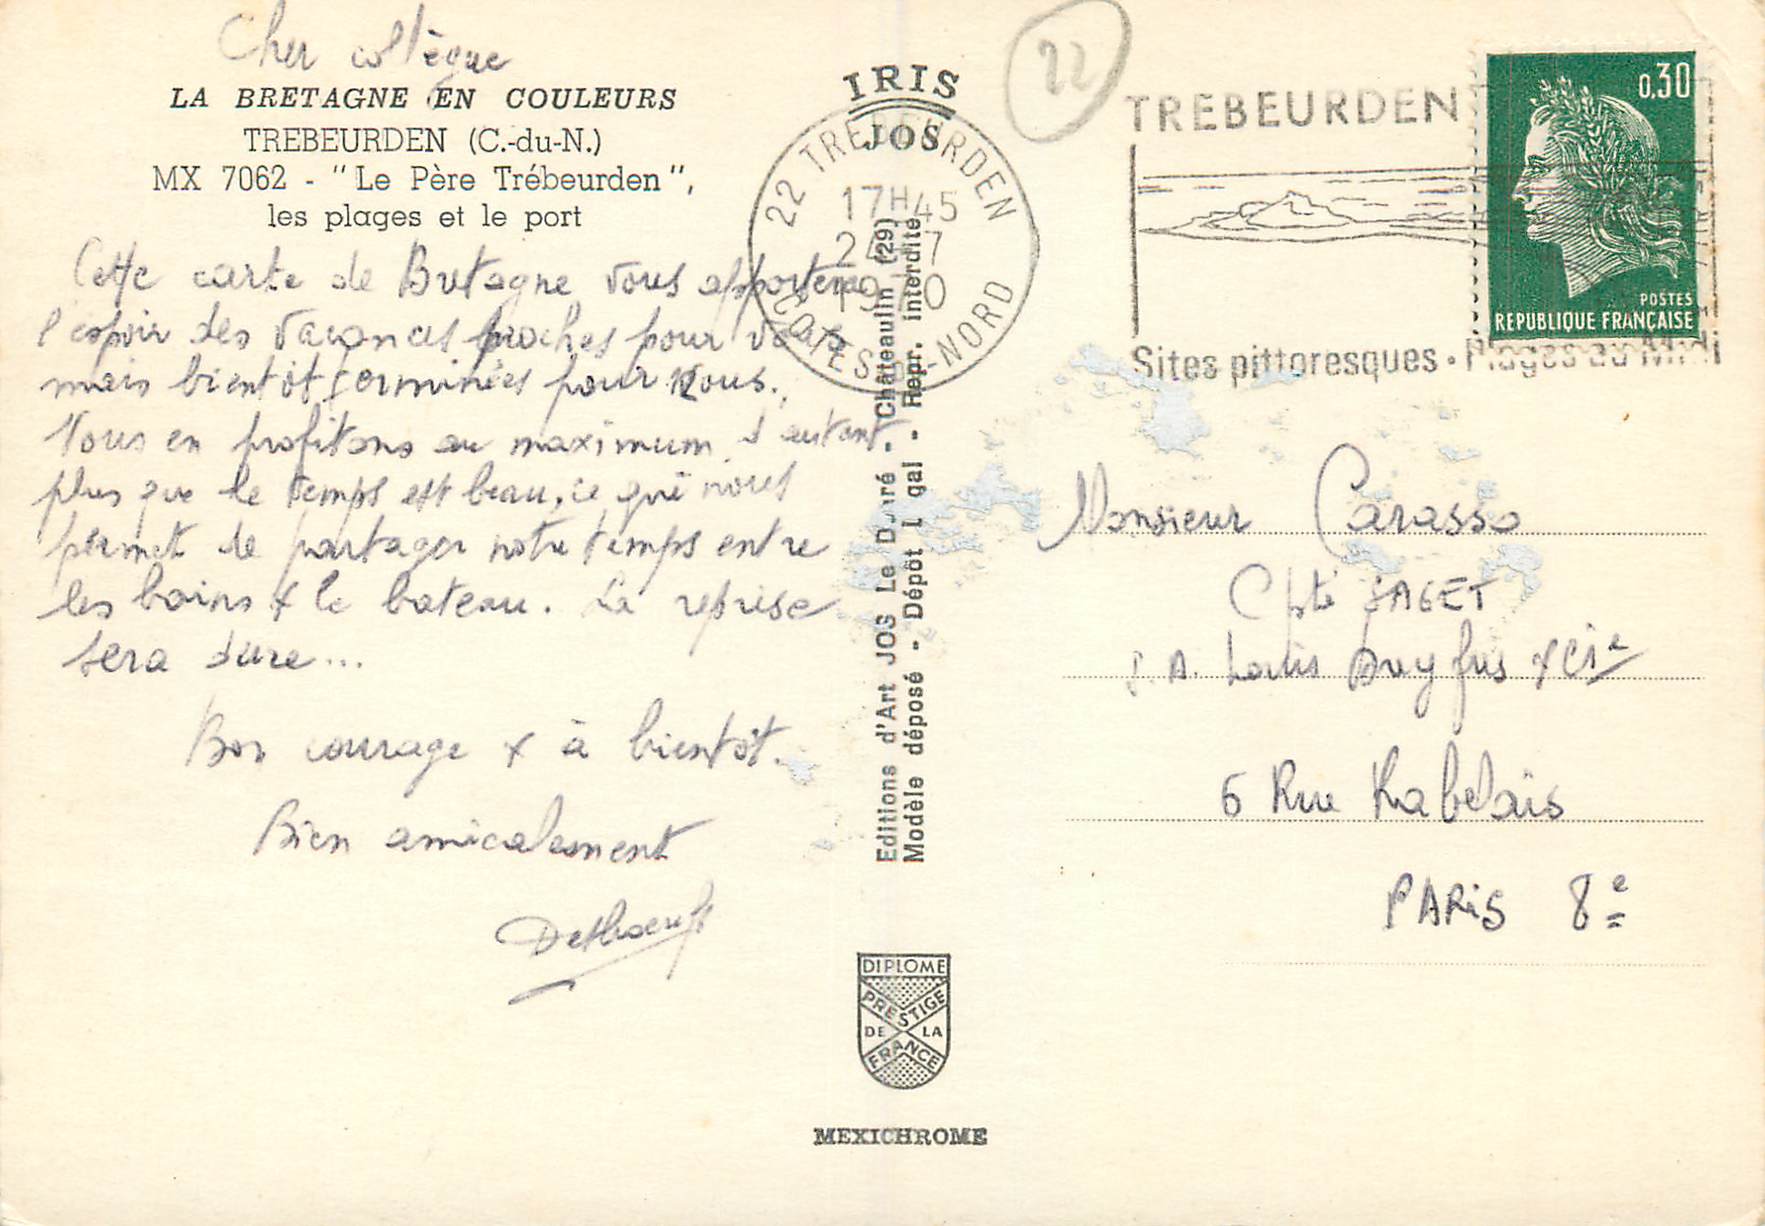 Cher collègue
LA BRETAGNE EN COULEURS
TREBEURDEN (C.-du-N.)
MX 7062 - "Le Père Trébeurden",
les plages et le port
Cette carte de Bretagne vous apportera
l'espoir des vacances proches pour vous
mais bientôt terminées pour nous.
Nous en profitons au maximum d'autant
plus que le temps est beau, ce qui nous
permet de partager notre temps entre
les bains & le bateau. La reprise
sera dure...
Bon courage & à bientôt.
Bien amicalement
IRIS
JOS
22 TREBEURDEN
17H45
24-7
1970
COTES-DU-NORD
22
TREBEURDEN
Sites pittoresques • Plages au Midi
0,30
POSTES
REPUBLIQUE FRANÇAISE
Editions d'Art JOS Le Doaré - Châteaulin (29)
Modèle déposé - Dépôt Légal - Repr. interdite
Monsieur Carasso
Cpté
S.A. Louis Dreyfus & Cie
6 Rue Rabelais
PARIS 8e
DIPLOME
PRESTIGE
DE LA
FRANCE
MEXICHROME